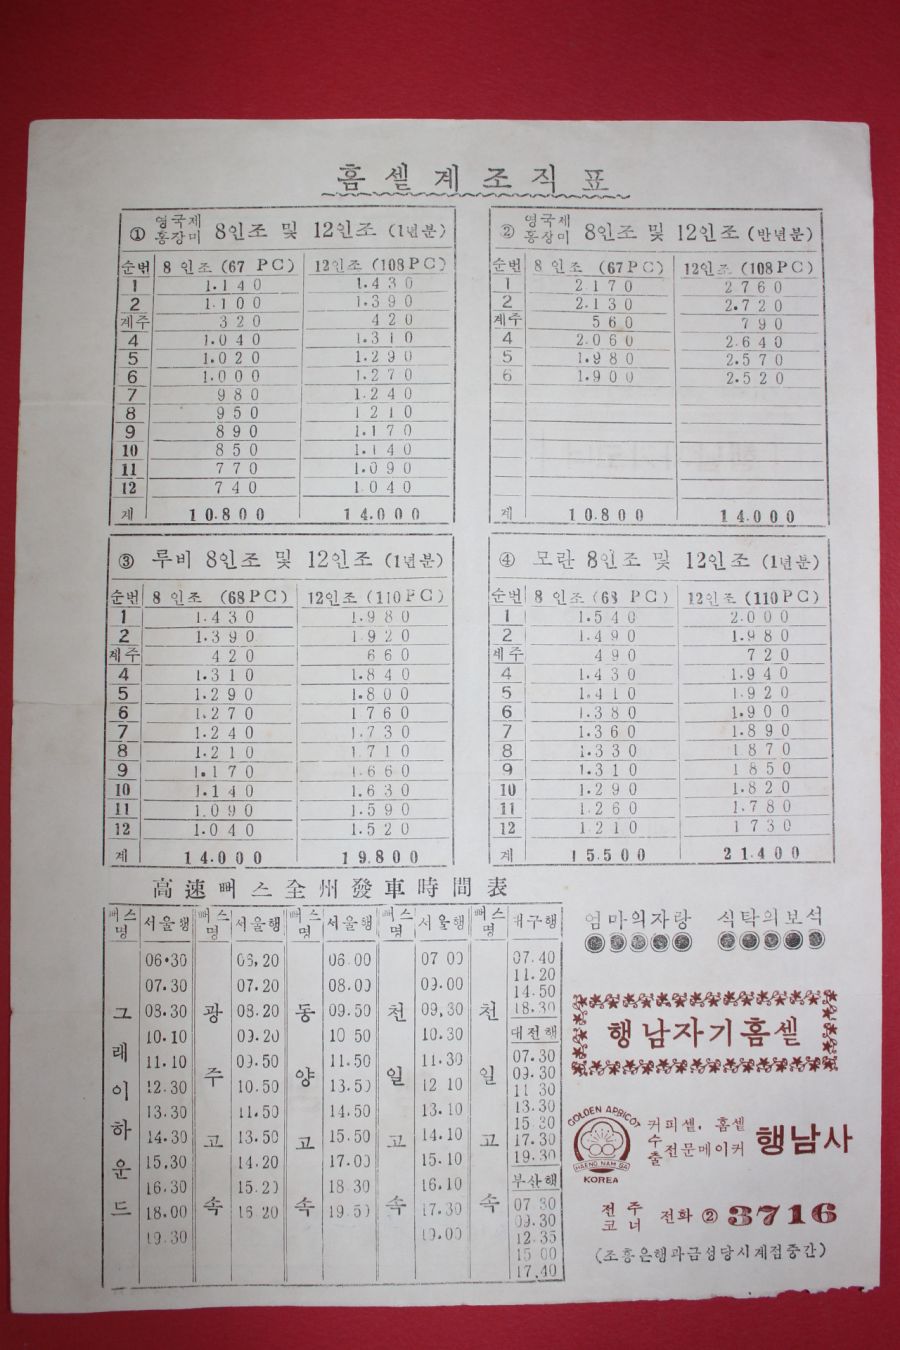 홈 셑 계 조 직 표
① 영국제 홍장미 8인조 및 12인조 (1년분)
순번 8 인조 (67 PC) 12인조 (108PC)
1 1.140 1.430
2 1.100 1.390
계주 320 420
4 1.040 1.310
5 1.020 1.290
6 1.000 1.270
7 980 1.240
8 950 1210
9 890 1.170
10 850 1.140
11 770 1.090
12 740 1.040
계 10.800 14.000
② 영국제 홍장미 8인조 및 12인조 (반년분)
순번 8 인조 (67PC) 12인조 (108PC)
1 2.170 2760
2 2.130 2.720
계주 560 790
4 2.060 2.640
5 1.980 2.570
6 1.900 2.520
계 10.800 14.000
③ 루비 8인조 및 12인조 (1년분)
순번 8 인조 (68PC) 12인조 (110PC)
1 1.430 1.980
2 1.390 1920
계주 420 660
4 1.310 1.840
5 1.290 1.800
6 1.270 1760
7 1.240 1.730
8 1.210 1.710
9 1.170 1.660
10 1.140 1.630
11 1.090 1.590
12 1.040 1.520
계 14.000 19.800
④ 모란 8인조 및 12인조 (1년분)
순번 8 인조 (68 PC) 12인조 (110PC)
1 1.540 2.000
2 1.490 1.980
계주 490 720
4 1.430 1.940
5 1.410 1.920
6 1.380 1.900
7 1.360 1.890
8 1.330 1870
9 1.310 1850
10 1.290 1.820
11 1.260 1.780
12 1.210 1730
계 15.500 21.400
高速뻐스全州發車時間表
뻐스명 서울행
그레이하운드
06.30
07.30
08.30
10.10
11.10
12.30
13.30
14.30
15.30
16.30
18.00
19.30
뻐스명 서울행
광주고속
06.20
07.20
08.20
09.20
09.50
10.50
11.50
13.50
14.20
15.20
16.20
뻐스명 서울행
동양고속
06.00
08.00
09.50
10.50
11.50
13.50
14.50
15.50
17.00
18.30
19.50
뻐스명 서울행
천일고속
07.00
09.00
09.30
10.30
11.30
12.10
13.10
14.10
15.10
16.10
17.30
19.00
뻐스명 대구행
천일고속
07.40
11.20
14.50
18.30
대전행
07.30
09.30
11.30
13.30
15.30
17.30
19.30
부산행
07.30
09.30
12.35
15.00
17.40
엄마의자랑 식탁의보석
행남자기홈셑
GOLDEN APRICOT
HAENG NAM SA
KOREA
커피셑, 홈셑
수출전문메이커 행남사
전주코너 전화 ② 3716
(조흥은행과금성당시계점중간)